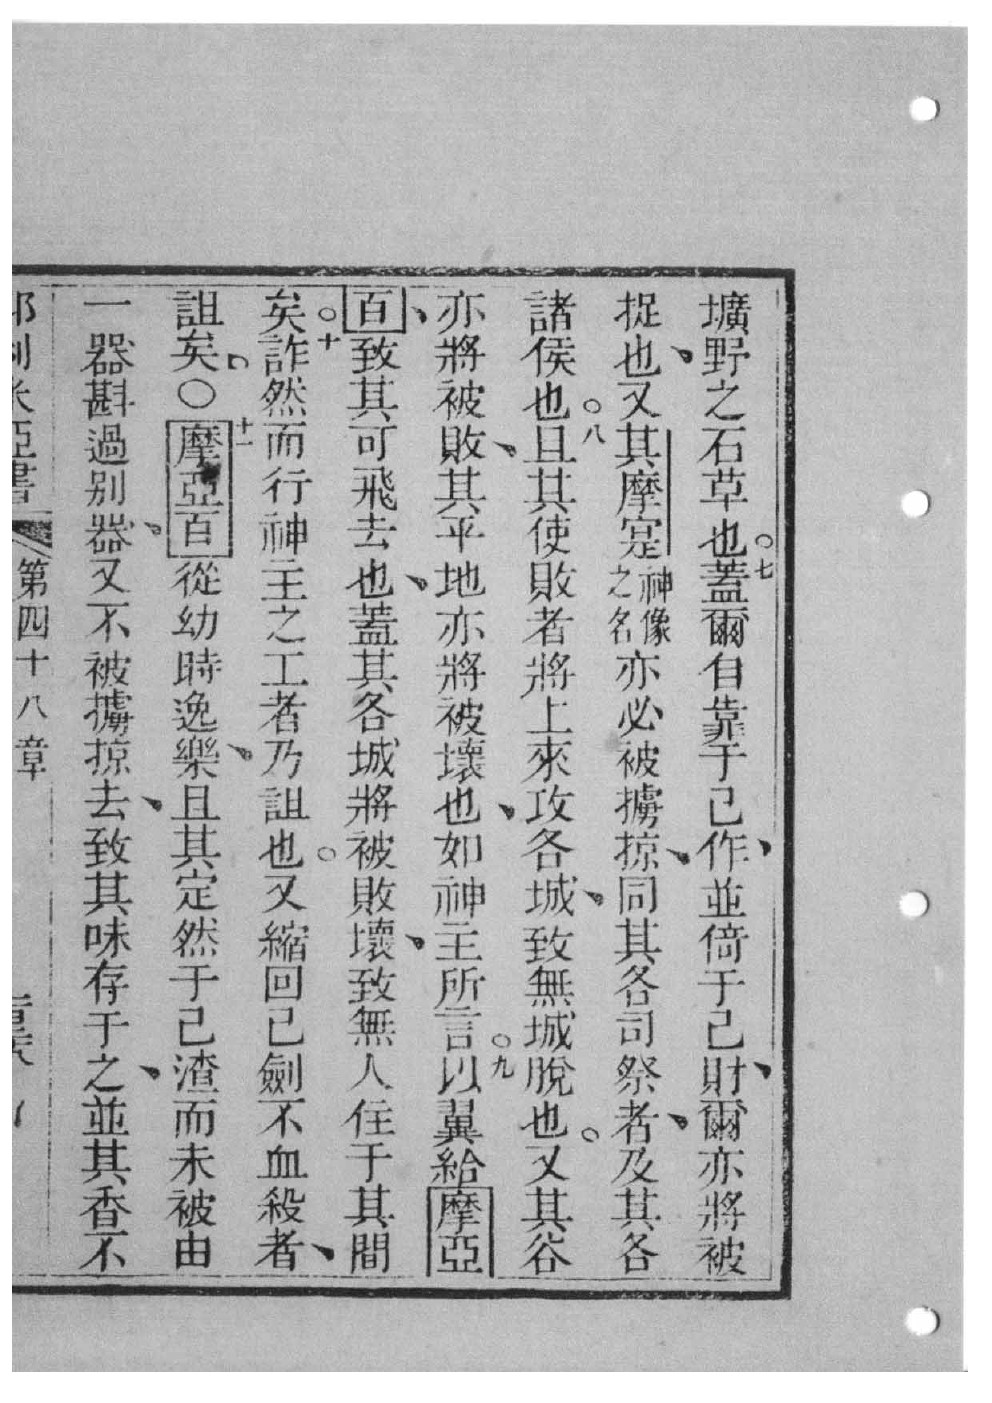 壙野之石草也○七蓋爾自靠于己作、並倚于己財、爾亦將被
捉也、又其摩寔神像之名亦必被擄掠、同其各司祭者、及其各
諸侯也○八且其使敗者將上來攻各城、致無城脫也○又其谷
亦將被敗、其平地亦將被壞也、如神主所言○九以翼給摩亞
百、致其可飛去也、蓋其各城將被敗壞、致無人住于其間
矣○十詐然而行神主之工者乃詛也○又縮回己劍不血殺者、
詛矣○十一摩亞百從幼時逸樂、且其定然于己渣而未被由
一器斟過別器、又不被擄掠去、致其味存于之、並其香不
第四十八章